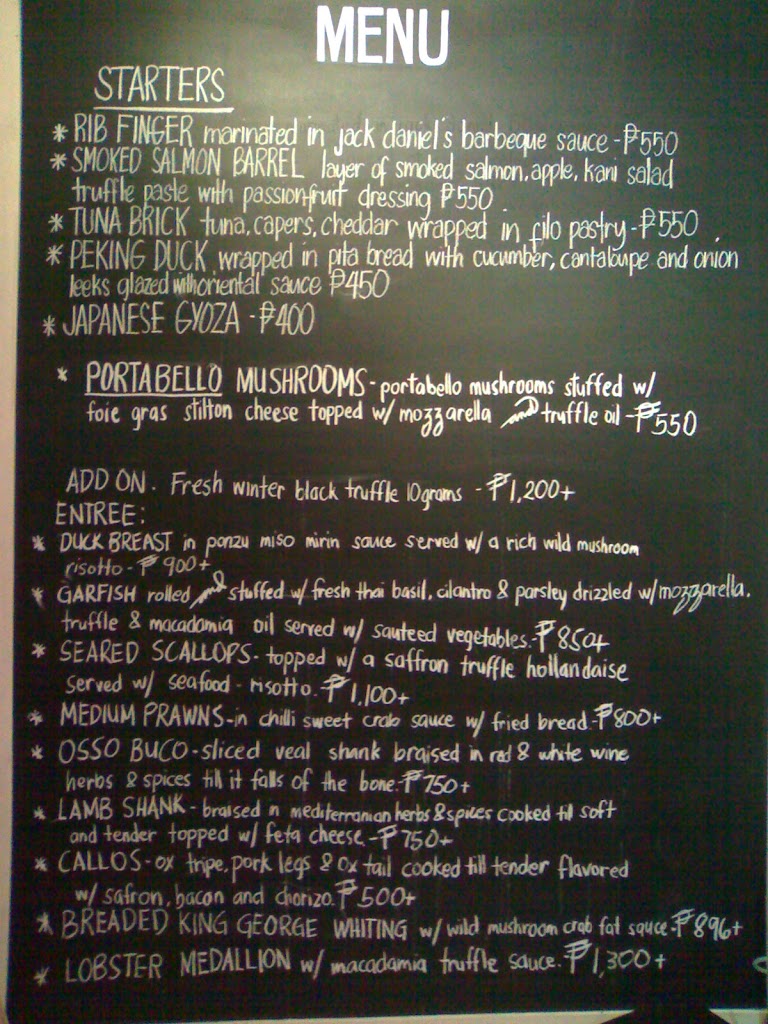 MENU
STARTERS
* RIB FINGER marinated in jack daniel's barbeque sauce - ₱550
* SMOKED SALMON BARREL layer of smoked salmon, apple, kani salad
truffle paste with passionfruit dressing ₱550
* TUNA BRICK tuna, capers, cheddar wrapped in filo pastry - ₱550
* PEKING DUCK wrapped in pita bread with cucumber, cantaloupe and onion
leeks glazed with oriental sauce ₱450
* JAPANESE GYOZA - ₱400
* PORTABELLO MUSHROOMS - portabello mushrooms stuffed w/
foie gras stilton cheese topped w/ mozzarella and truffle oil - ₱550
ADD ON. Fresh winter black truffle 10grams - ₱1,200+
ENTREE:
* DUCK BREAST in ponzu miso mirin sauce served w/ a rich wild mushroom
risotto - ₱900+
* GARFISH rolled and stuffed w/ fresh thai basil, cilantro & parsley drizzled w/ mozzarella.
truffle & macadamia oil served w/ sauteed vegetables. ₱850+
* SEARED SCALLOPS - topped w/ a saffron truffle hollandaise
served w/ seafood - risotto. ₱1,100+
* MEDIUM PRAWNS - in chilli sweet crab sauce w/ fried bread. ₱800+
* OSSO BUCO - sliced veal shank braised in red & white wine
herbs & spices till it falls of the bone. ₱750+
* LAMB SHANK - braised n mediterranian herbs & spices cooked til soft
and tender topped w/ feta cheese. - ₱750+
* CALLOS - ox tripe, pork legs & ox tail cooked till tender flavored
w/ safron, bacon and chorizo. ₱500+
* BREADED KING GEORGE WHITING w/ wild mushroom crab fat sauce. ₱896+
* LOBSTER MEDALLION w/ macadamia truffle sauce. ₱1,300+